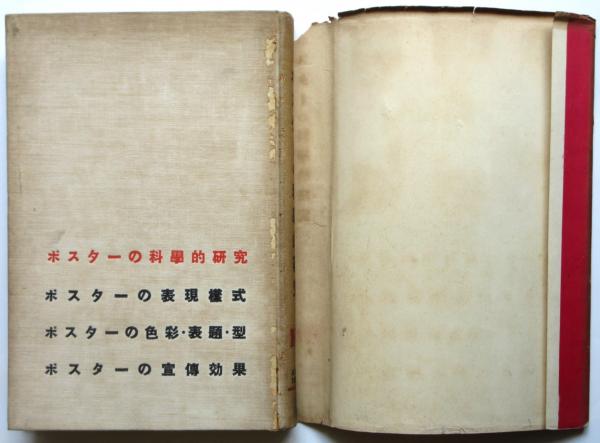 ポスターの科學的研究
ポスターの表現樣式
ポスターの色彩・表題・型
ポスターの宣傳効果